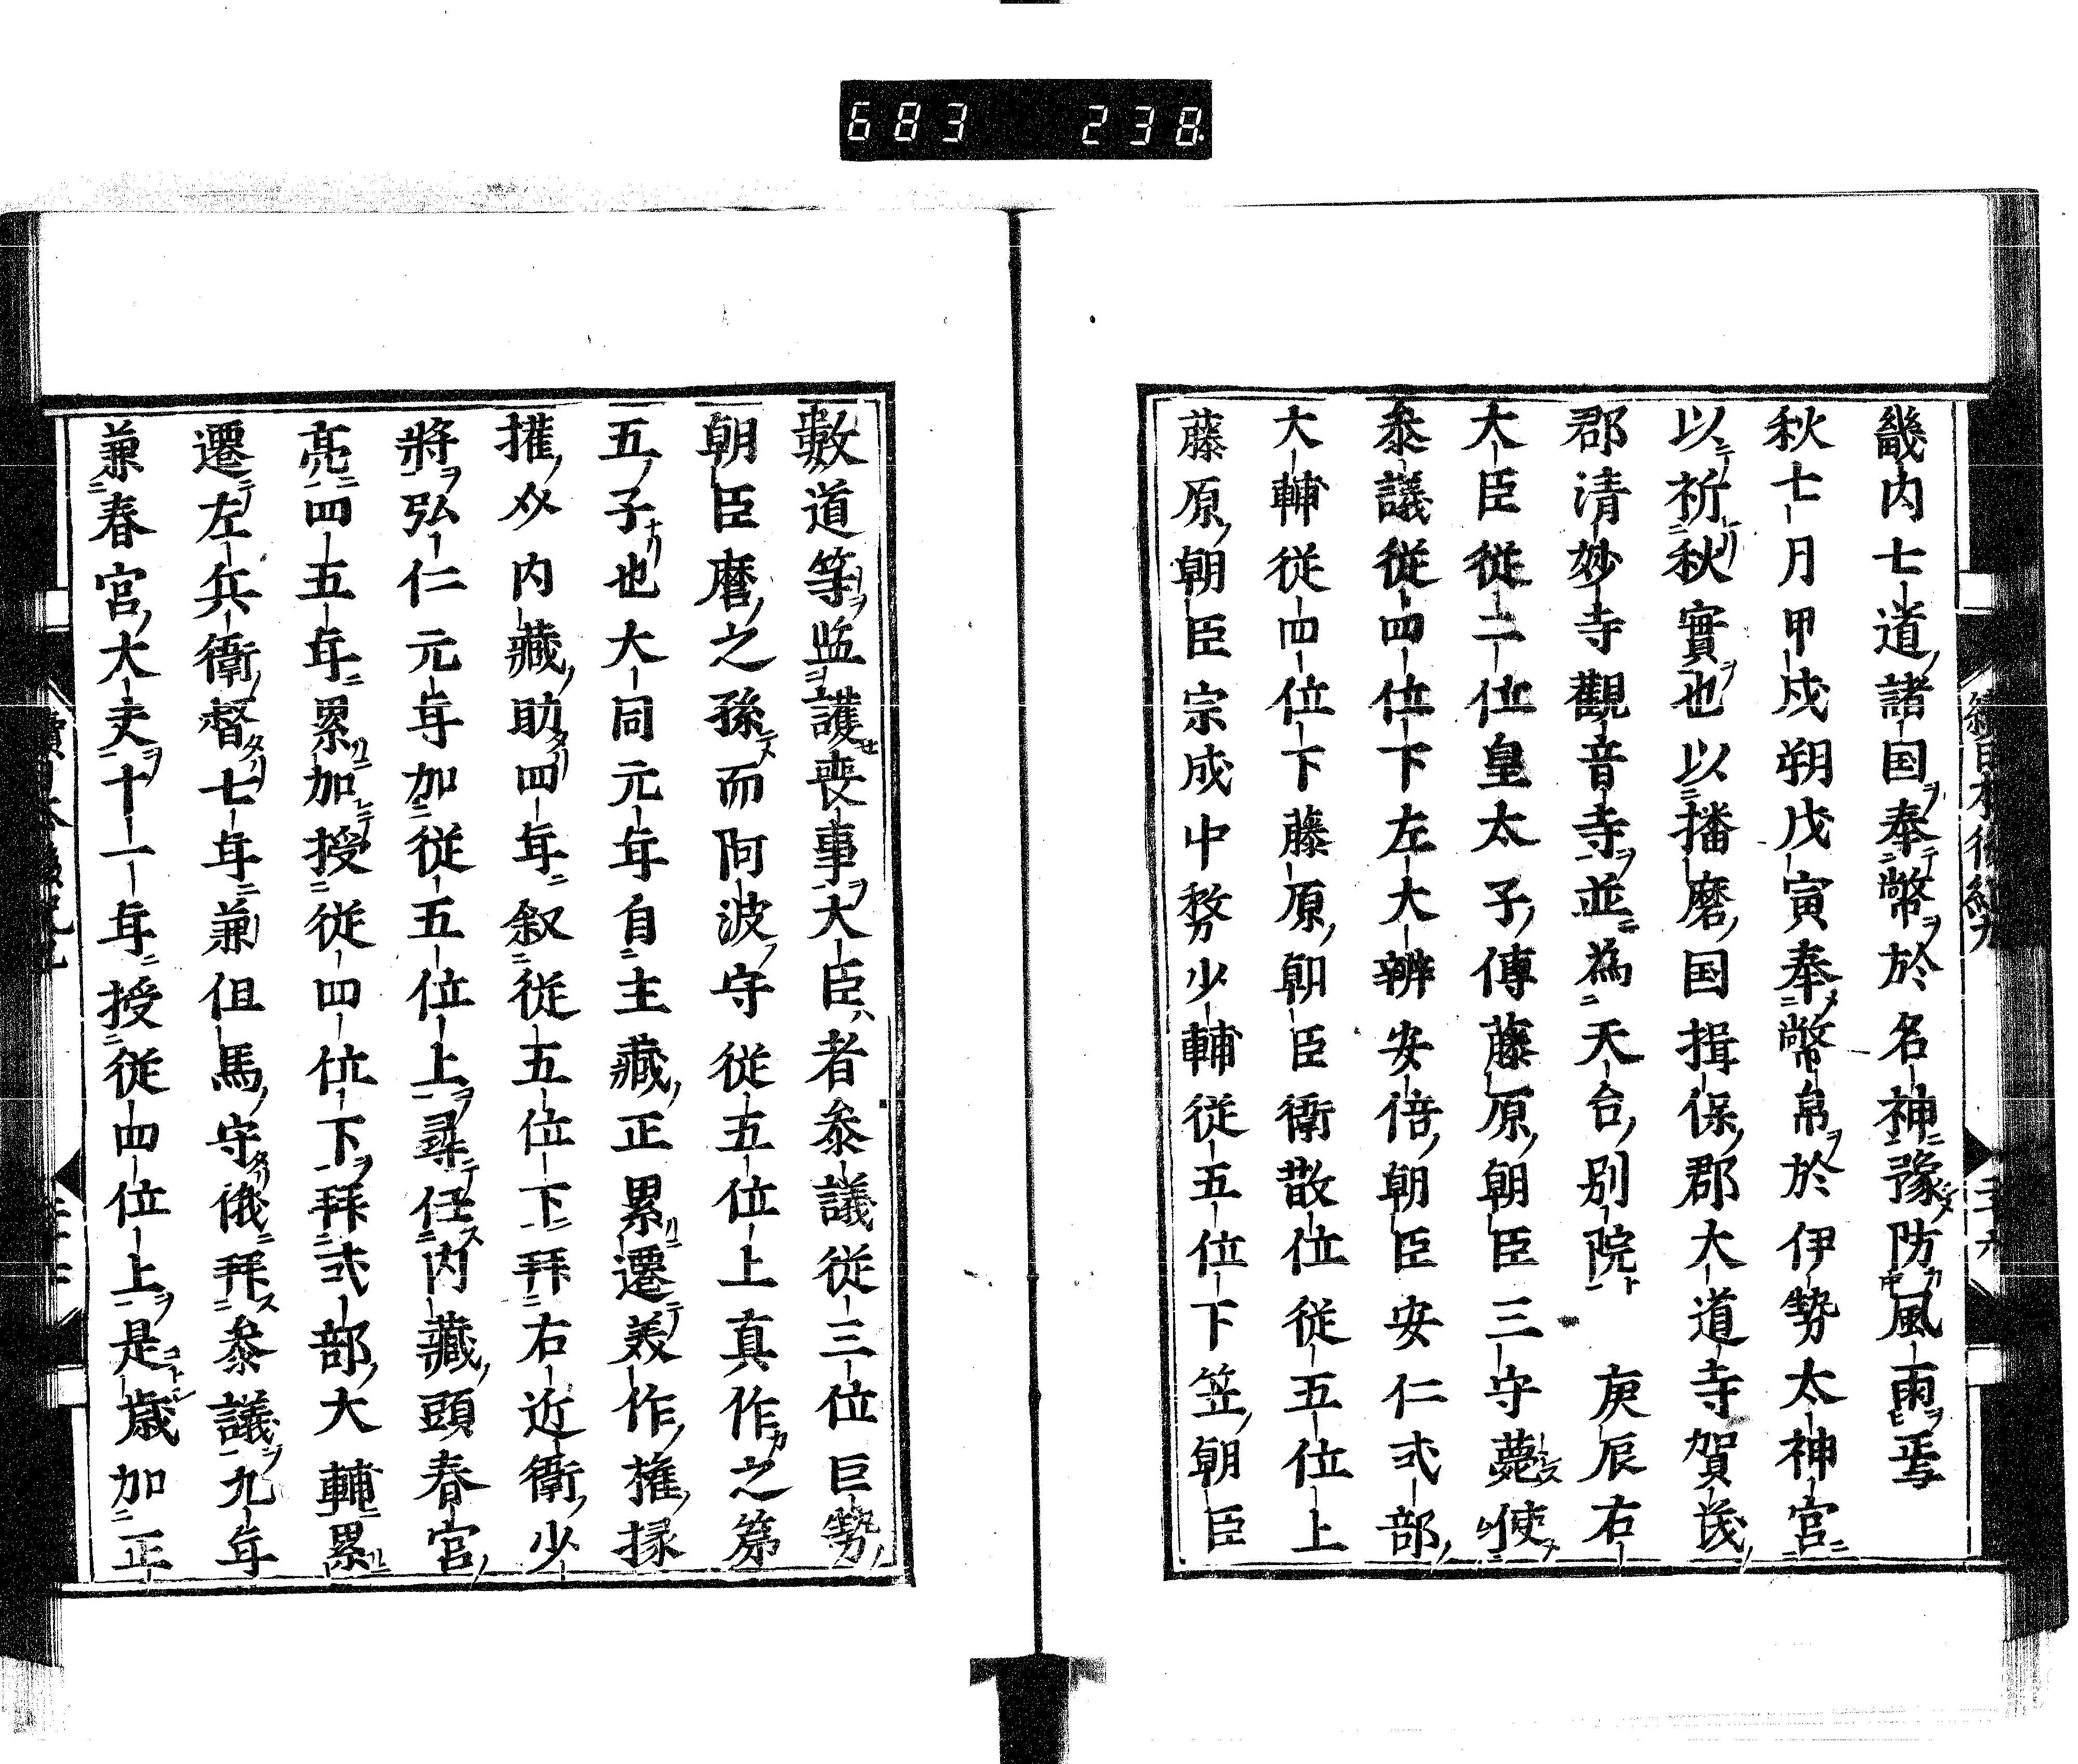 683 238
畿内七道諸国奉幣於名神豫防風雨焉
秋七月甲戌朔戊寅奉幣帛於伊勢太神宮
以祈秋實也以播磨国揖保郡大道寺賀茂
郡清妙寺觀音寺並為天台別院 庚辰右
大臣從二位皇太子傅藤原朝臣三守薨使
参議從四位下左大辨安倍朝臣安仁式部
大輔從四位下藤原朝臣衛散位從五位上
藤原朝臣宗成中務少輔從五位下笠朝臣
數道等監護喪事大臣者参議從三位巨勢
朝臣麿之孫而阿波守從五位上真作之第
五子也大同元年自主藏正累遷美作権掾
擢任内藏助四年叙從五位下拜右近衛少
將弘仁元年加從五位上尋任内藏頭春宮
亮四五年累加授從四位下拜式部大輔累
遷左兵衛督七年兼但馬守俄拜参議九年
兼春宮大夫十一年授從四位上是歳加正